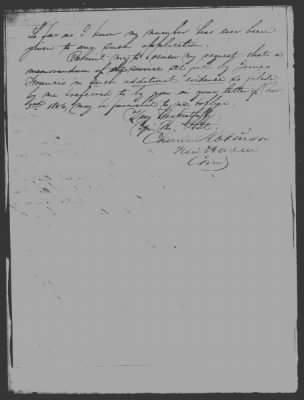 So far as I know no number has ever been
given to any such application.
Permit me to renew my request that a
memorandum of the service set forth by James
Francis in such additional evidence so filed
by me referred to by you in your letter of Nov
1886, may be furnished to me & oblige
Very Respectfully
Your Ob. Serv.
Robinson
New Haven
Conn